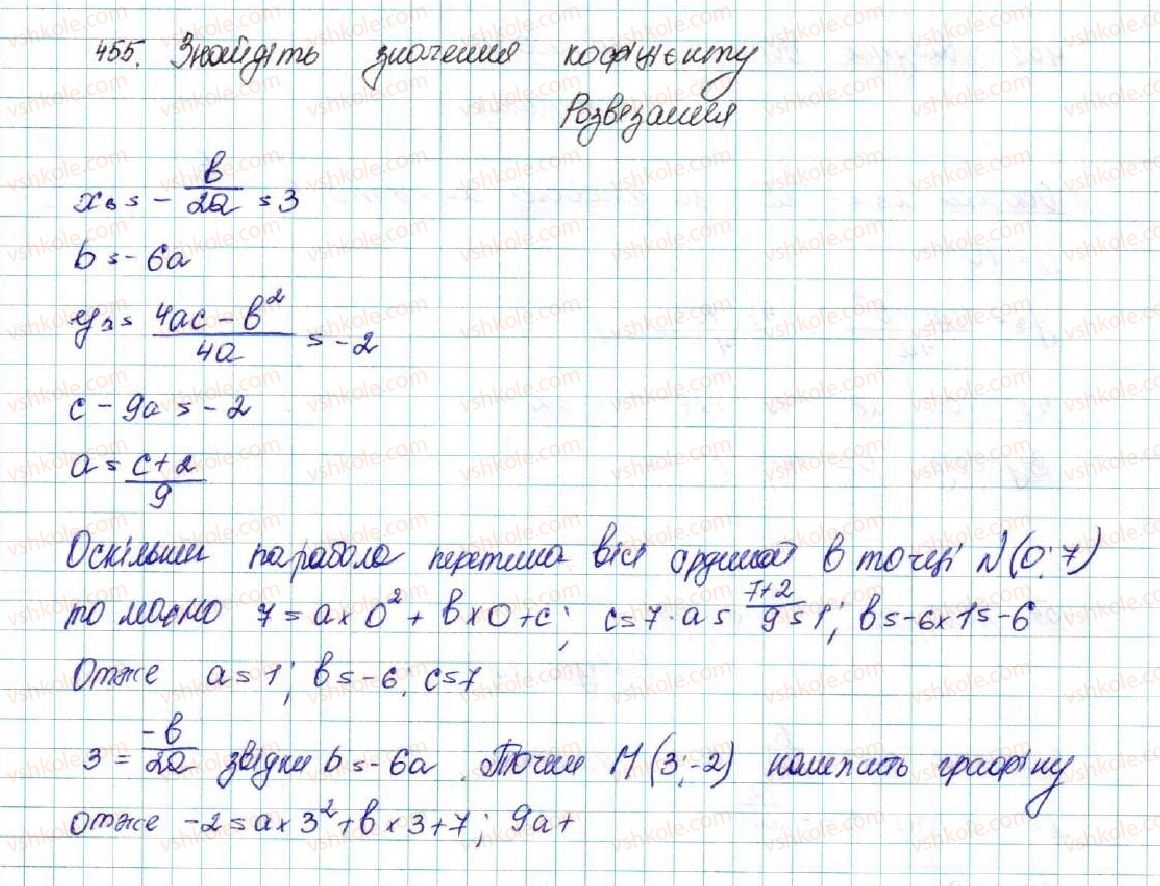 455. Знайдіть значення кофіцієнту
Розвязання
xв = - b/2a = 3
b = -6a
yв = 4ac - b²/4a = -2
c - 9a = -2
a = c+2/9
Оскільки парабола перетина вісі ординат в точці N(0;7)
то маємо 7 = a x 0² + b x 0 + c; c=7. a = 7+2/9 = 1; b = -6x1 = -6
Отже a = 1; b = -6; c = 7
3 = -b/2a звідки b = -6a. Точки М(3;-2) належать графіку
отже -2 = a x 3² + b x 3 + 7; 9a +